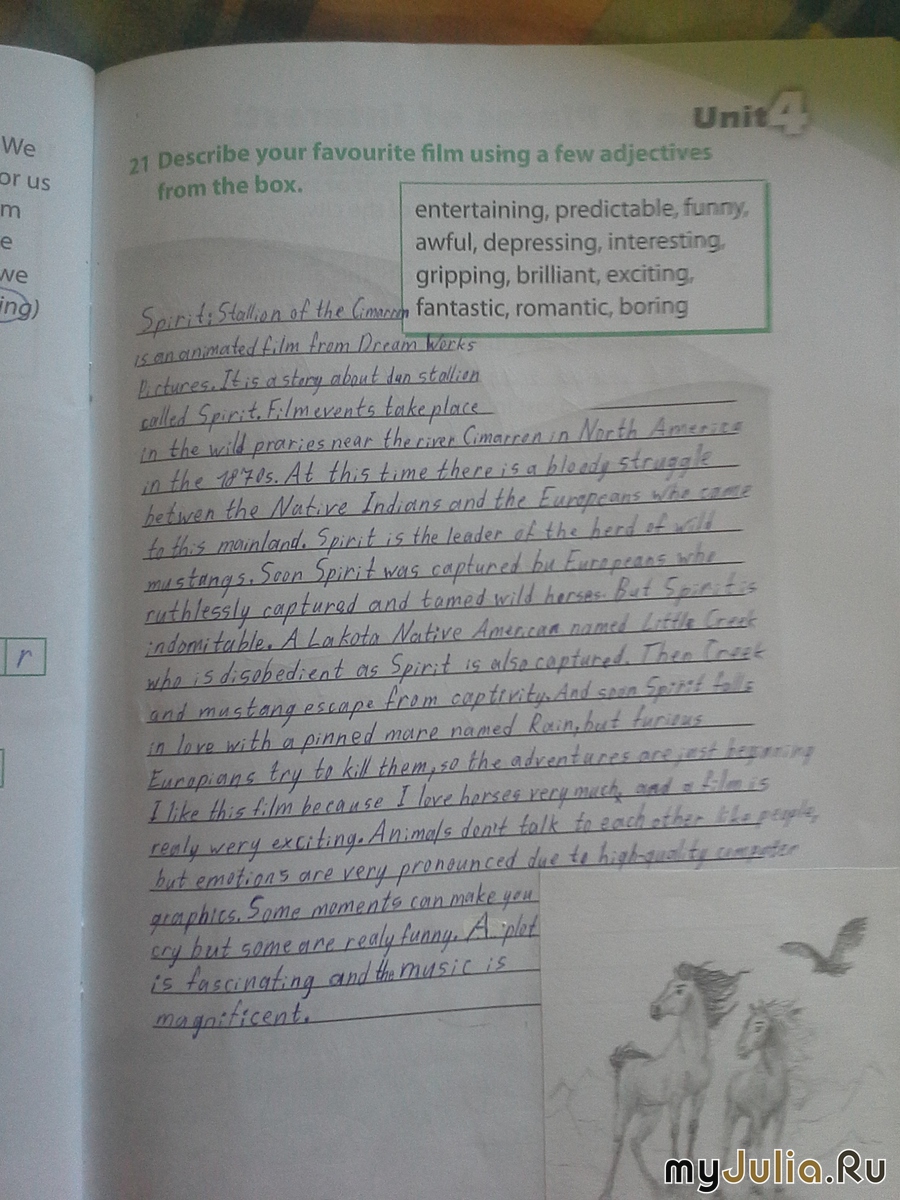 We
or us
m
e
we
ing)
r
Unit 4
21 Describe your favourite film using a few adjectives
from the box.
entertaining, predictable, funny,
awful, depressing, interesting,
gripping, brilliant, exciting,
fantastic, romantic, boring
Spirit: Stallion of the Cimarron
is an animated film from Dream Works
Pictures. It is a story about dun stallion
called Spirit. Film events take place
in the wild praries near the river Cimarron in North America
in the 1870s. At this time there is a bloody struggle
betwen the Native Indians and the Europeans who came
to this mainland. Spirit is the leader of the herd of wild
mustangs. Soon Spirit was captured bu Europeans who
ruthlessly captured and tamed wild horses. But Spirit is
indomitable. A Lakota Native American named Little Creek
who is disobedient as Spirit is also captured. Then Creek
and mustang escape from captivity. And soon Spirit falls
in love with a pinned mare named Rain, but furious
Europians try to kill them, so the adventures are just beginning
I like this film because I love horses very much, and a film is
realy wery exciting. Animals don't talk to each other like people,
but emotions are very pronounced due to high-quality computer
graphics. Some moments can make you
cry but some are realy funny. A plot
is fascinating and the music is
magnificent.
myJulia.Ru